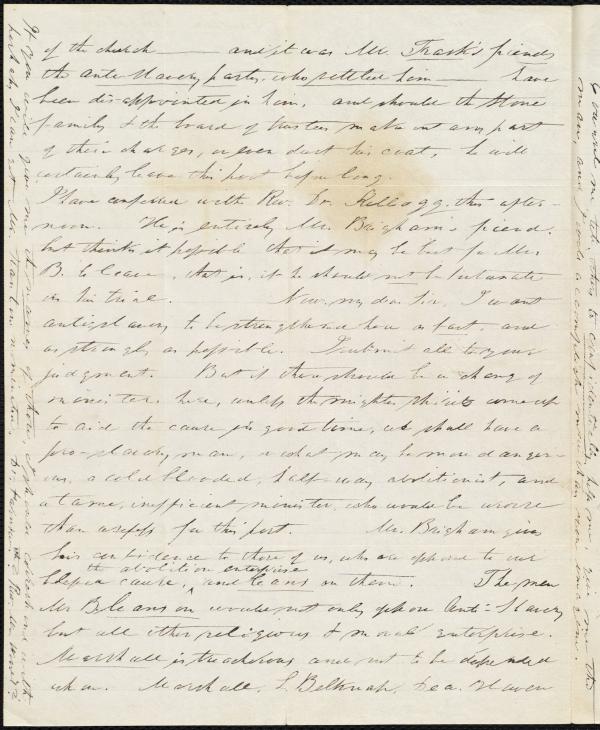 of the church —— and it was Mr. Trask's friends
the anti-slavery party, who settled him —— have
been dis-appointed in him, and should the Stone
family & the board of trustees make out any part
of their charges, or even dust his coat, he will
certainly leave this post before long.
I have conferred with Rev. Dr. Kellogg, this after-
noon. He is entirely Mr. Brigham's friend,
but thinks it possible that it may be best for Mr.
B. to leave, that is, if he should not be fortunate
in his trial. Now, my dear Sir, I want
antislavery to be strengthened here as fast, and
as strongly as possible. I submit all to your
judgment. But if there should be a change of
minister here, unless the mighty shall come up
to aid the cause in good time, we shall have a
pro-slavery man, or what may be more danger-
ous, a cold blooded, half-way abolitionist, and
a tame, inefficient minister, who would be worse
than useless for this post. Mr. Brigham gives
his confidence to those of us, who are opposed to our
the abolition enterprise
blessed cause, and leans on them. The men
Mr B leans on would not only oppose Anti-Slavery
but all other religious & moral enterprise.
Marshall is treacherous and not to be depended
upon. Marshall, L. Belknap, Dea. Haven
If you will give me the names of those, I when correspond with
perhaps I can get Mr. a minister.
to confidentially help me, give me the
man, and I would accomplish more than now imagine.